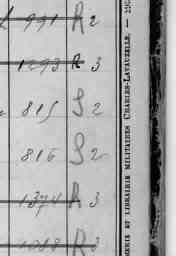 991 R 2
1293 R 3
815 S 2
816 S 2
1374 R 3
R 3
ERIE ET LIBRAIRIE MILITAIRES CHARLES-LAVAUZELLE. —